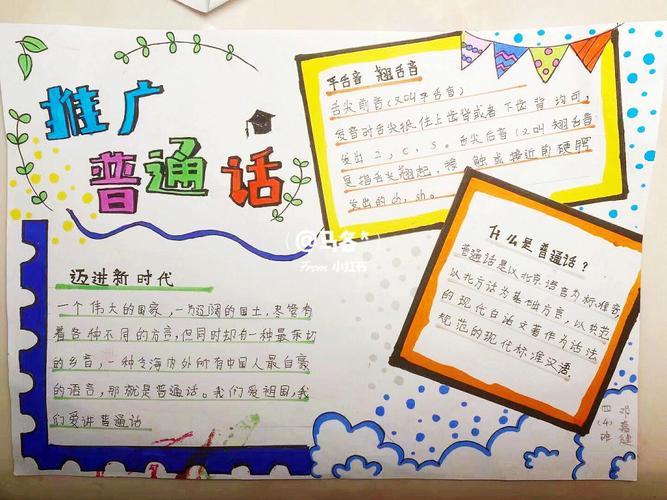 推广
普通话
平舌音 翘舌音
舌尖前音(又叫平舌音)
发音时舌尖抵住上齿背或者下齿背均可.
发出z,c,s。舌尖后音(又叫翘舌音
是指舌尖翘起,接触或接近前硬腭
发出的
sh。
什么是普通话?
普通话是以北京语言为标准音
以北方话为基础方言,以典范
的现代白话文著作为语法
规范的现代标准汉语.
迈进新时代
一个伟大的国家,一为辽阔的国土,尽管有
着各种不同的方言,但同时却有一种最亲切
的乡音,一种令海内外所有中国人最自豪
的语言,那就是普通话。我们爱祖国,我
们爱讲普通话
四(4)班
邓嘉健
@马冬
From 小红书